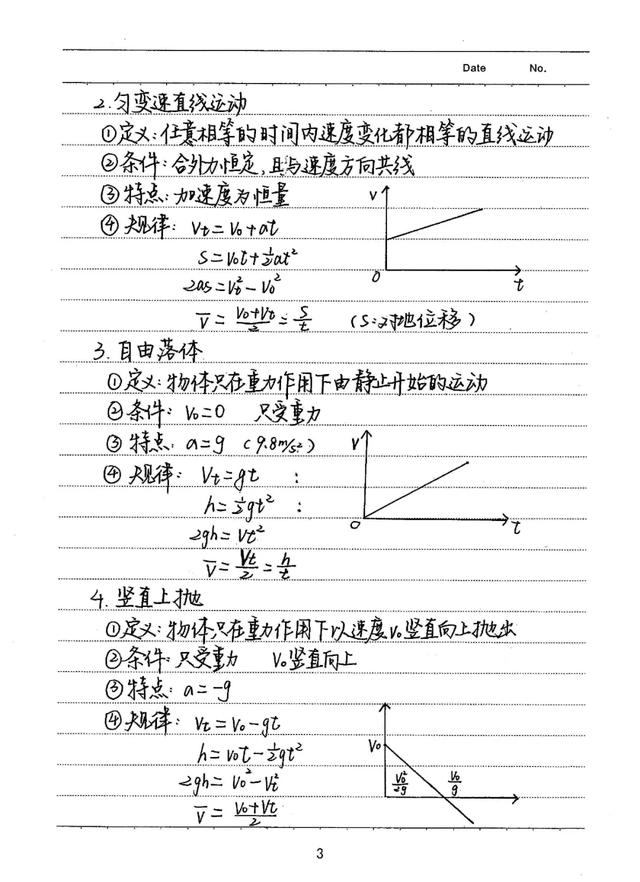 Date No.
2.匀变速直线运动
①定义:任意相等的时间内速度变化都相等的直线运动
②条件:合外力恒定,且与速度方向共线
③特点:加速度为恒量
④规律: Vt=V0+at
S=V0t+½at²
2as=Vt²-V0²
V̅=(V0+Vt)/2=S/t (S:对地位移)
V
0
t
3.自由落体
①定义:物体只在重力作用下由静止开始的运动
②条件: V0=0 只受重力
③特点: a=g (9.8m/s²)
④规律: Vt=gt :
h=½gt² :
2gh=Vt²
V̅=Vt/2=h/t
V
0
t
4.竖直上抛
①定义:物体只在重力作用下以速度V0竖直向上抛出
②条件:只受重力 V0竖直向上
③特点: a=-g
④规律: Vt=V0-gt
h=V0t-½gt²
2gh=V0²-Vt²
V̅=(V0+Vt)/2
V0
V0²/2g
V0/g
3